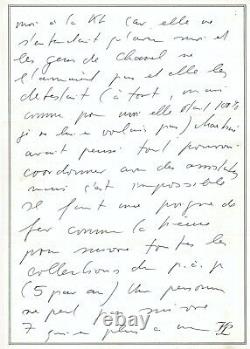 moi à la KL car elle ne
s'entendait qu'avec moi et
les gens de Chanel ne
l'aimaient pas et elle les
détestait (à tort, mais
comme pour moi elle était 100%
je ne lui en voulais pas)
avait pensé tout pouvoir
coordonner avec des assistantes
mais c'est impossible
Il faut une poigne de
fer comme la mienne
pour suivre toutes les
collections du p.à.p
(5 par an) Une personne
ne peut pas suivre
7 plus
© www.1st-art-gallery.com